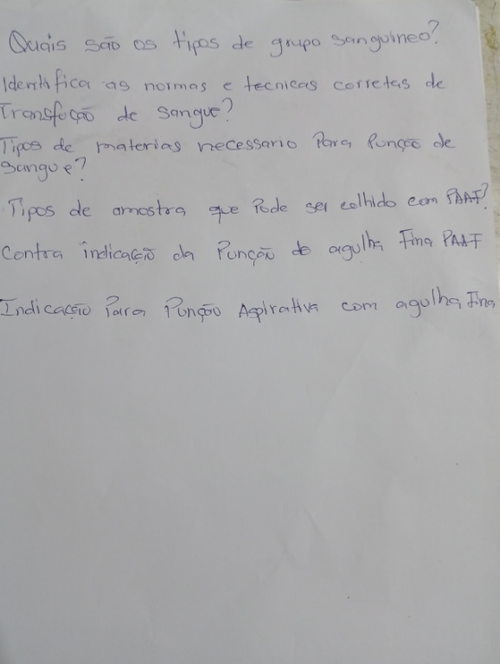 Quais são os tipos de grupo sanguineo?
Identifica as normas e tecnicas corretas de
Transfução de sangue?
Tipos de materias necessario Para Punção de
sangue?
Tipos de amostra que Pode ser colhido com PAAF?
Contra indicação da Punção de agulha Fina PAAF
Indicação Para Punção Aspirativa com agulha Fina